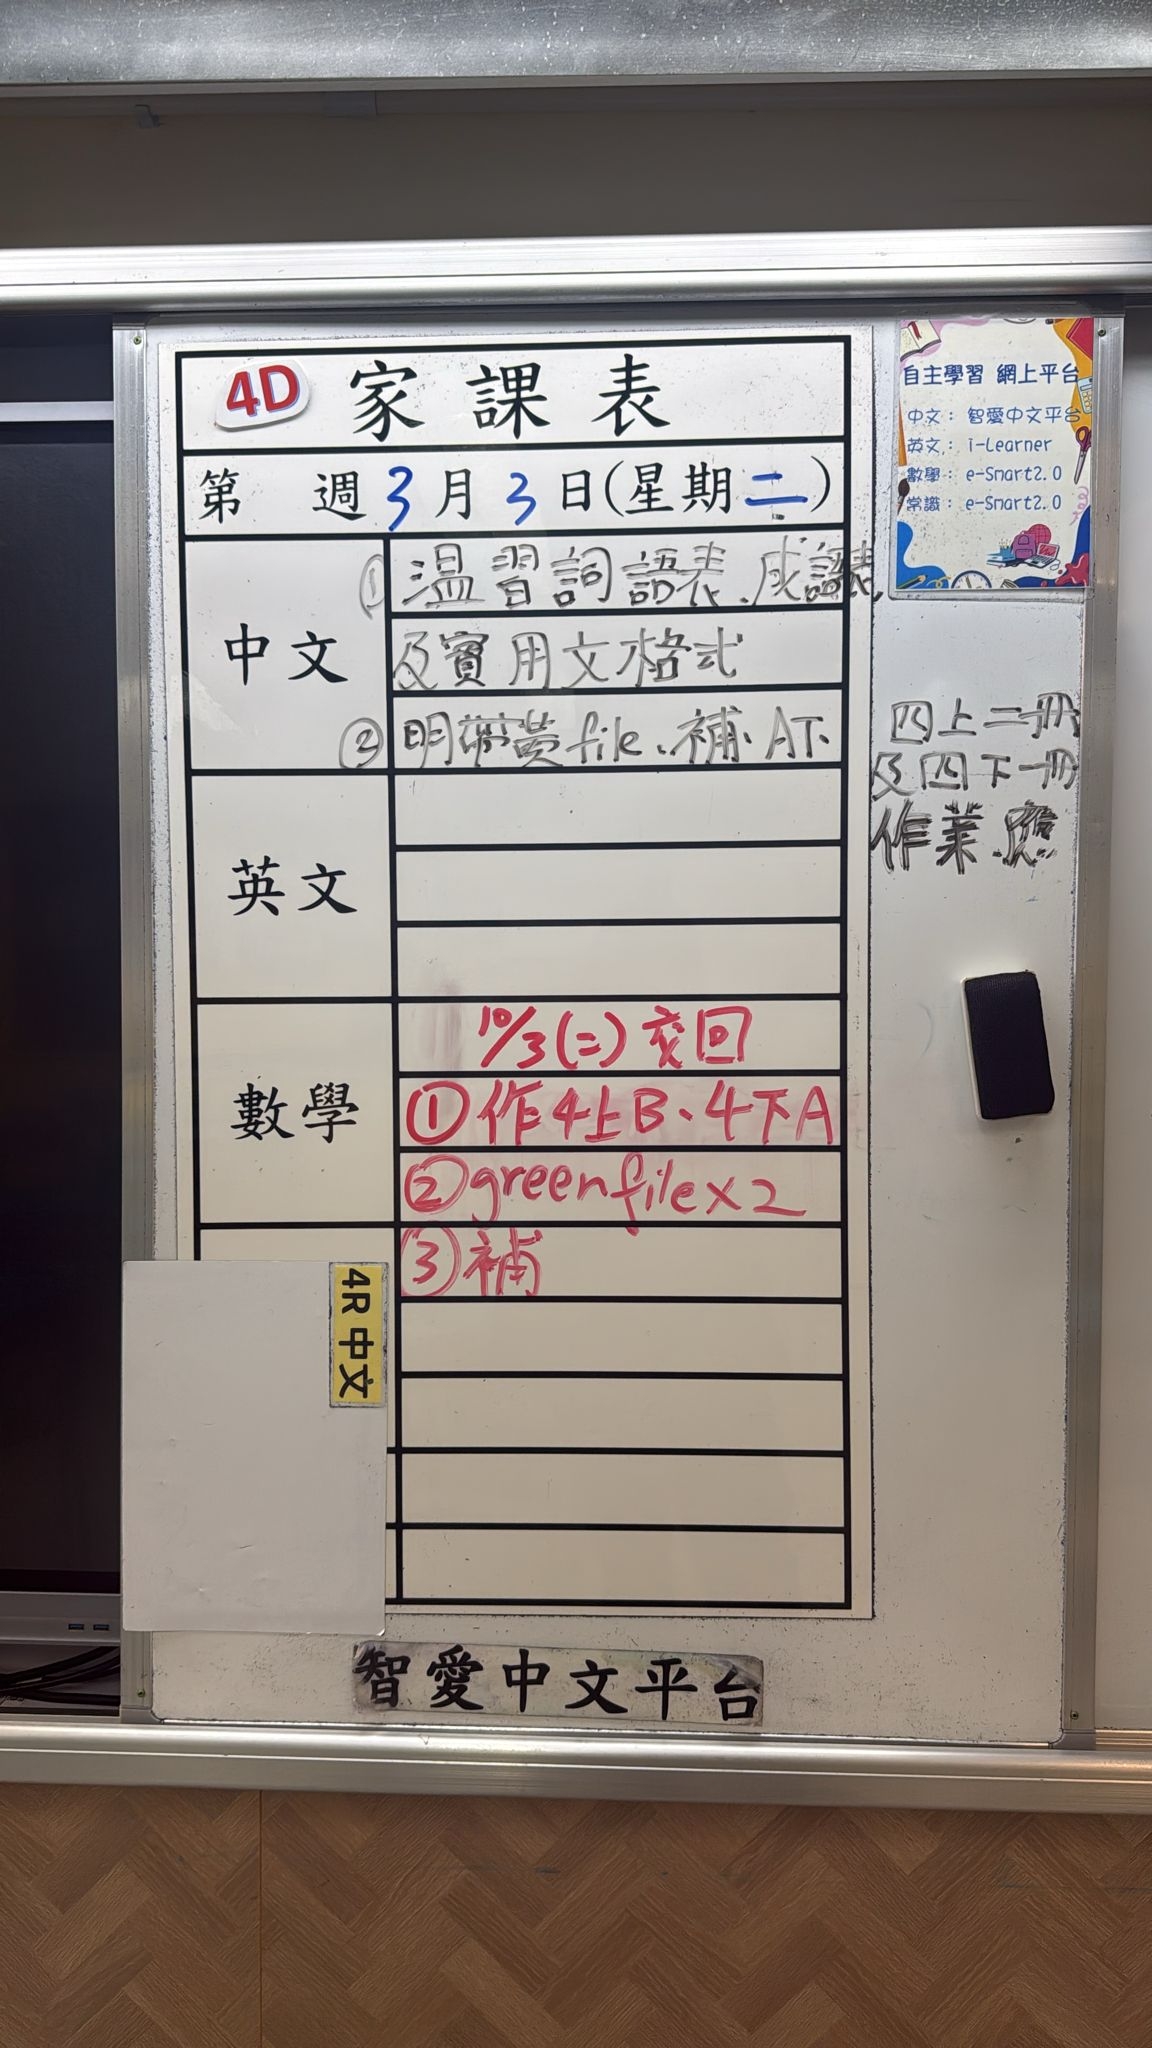 4D 家課表
第 週 3月3日(星期二)
中文
① 温習詞語表、成語表,
及實用文格式
② 明帶黃file、補、A下
四上二冊
及四下一冊
作業
英文
數學
10/3(二)交回
①作4上B、4下A
②greenfile×2
③補
4R 中文
智愛中文平台
自主學習 網上平台
中文: 智愛中文平台
英文: i-Learner
數學: e-Smart2.0
常識: e-Smart2.0